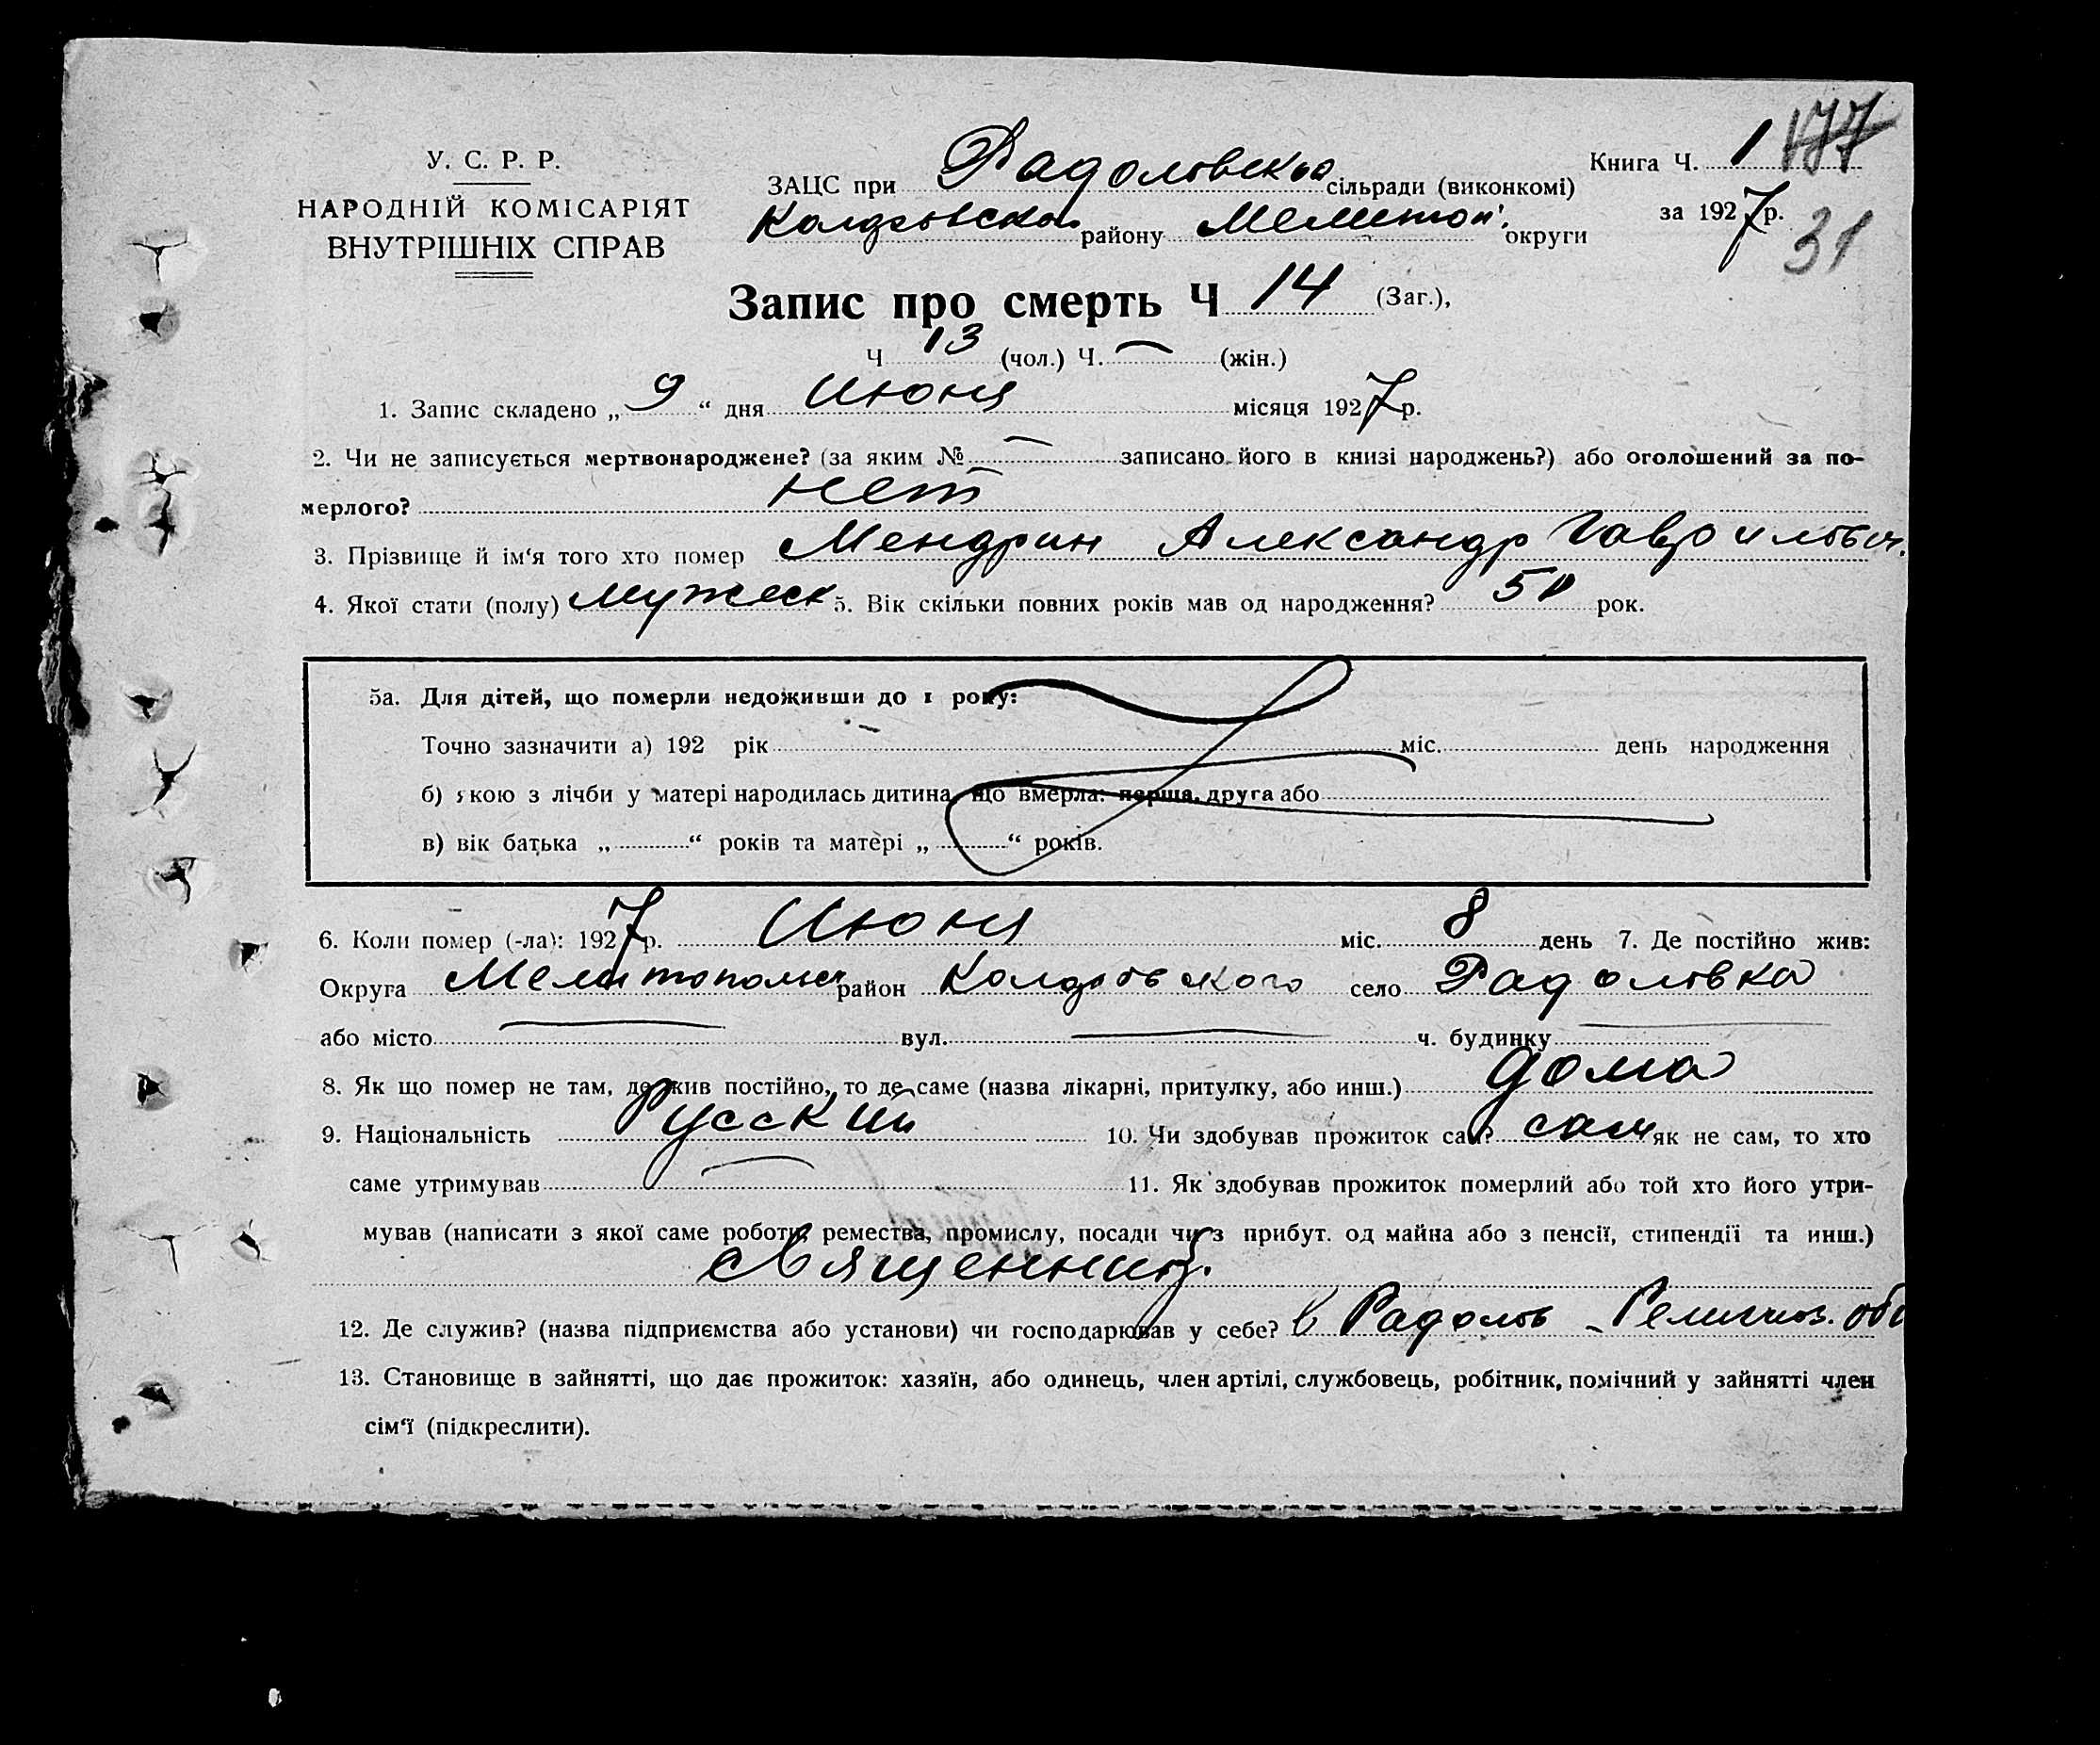 У. С. Р. Р.
НАРОДНІЙ КОМІСАРІЯТ
ВНУТРІШНІХ СПРАВ
Книга Ч. 1 177
за 1927 р. 31
ЗАЦС при Радоловской сільради (виконкомі)
району Мелитоп. округи
Запис про смерть Ч 14 (Заг.),
Ч 13 (чол.) Ч. — (жін.)
1. Запис складено „ 9 “ дня Июня місяця 1927 р.
2. Чи не записується мертвонароджене? (за яким № — записано його в книзі народжень?) або оголошений за по-
мерлого? нет
3. Прізвище й ім‘я того хто помер Мендрин Александр Гаврилович.
4. Якої стати (полу) мужеск 5. Вік скільки повних років мав од народження? рок.
5а. Для дітей, що померли недоживши до 1 року:
Точно зазначити а) 192 рік міс. день народження
б) якою з лічби у матері народилась дитина, що вмерла: перша, друга або
в) вік батька „ “ років та матері „ “ років.
6. Коли помер (-ла): 1927 р. Июня міс. 8 день 7. Де постійно жив:
Округа Мелитопольск район село Радоловка
або місто — вул. — ч. будинку —
8. Як що помер не там, де жив постійно, то де саме (назва лікарні, притулку, або инш.) дома
9. Національність Русский 10. Чи здобував прожиток сам? сам як не сам, то хто
саме утримував — 11. Як здобував прожиток померлий або той хто його утри-
мував (написати з якої саме роботи, ремества, промислу, посади чи з прибут. од майна або з пенсії, стипендії та инш.)
священник.
12. Де служив? (назва підприємства або установи) чи господарював у себе? в Радолов - Религиоз. об
13. Становище в зайнятті, що дає прожиток: хазяїн, або одинець, член артілі, службовець, робітник, помічний у зайнятті член
сім‘ї (підкреслити).